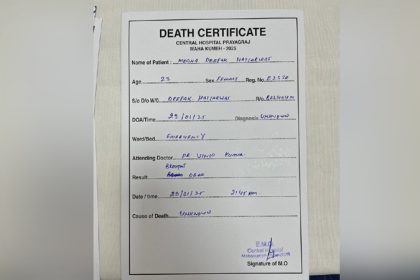 DEATH CERTIFICATE
CENTRAL HOSPITAL PRAYAGRAJ
MAHA KUMBH - 2025
Name of Patient: MEGHA DEEPAK
Age 23 Sex FEMALE Reg. No.
S/o D/o W/o. DEEPAK R/o.
DOA/Time 29/01/25 Diagnosis UNKNOWN
Ward/Bed. EMERGENCY
Attending Doctor DR VINOD KUMAR
Brought
Result DEAD
Date / time 29/01/25
Cause of Death UNKNOWN
E.M.O.
Central Hospital
Signature of M.O